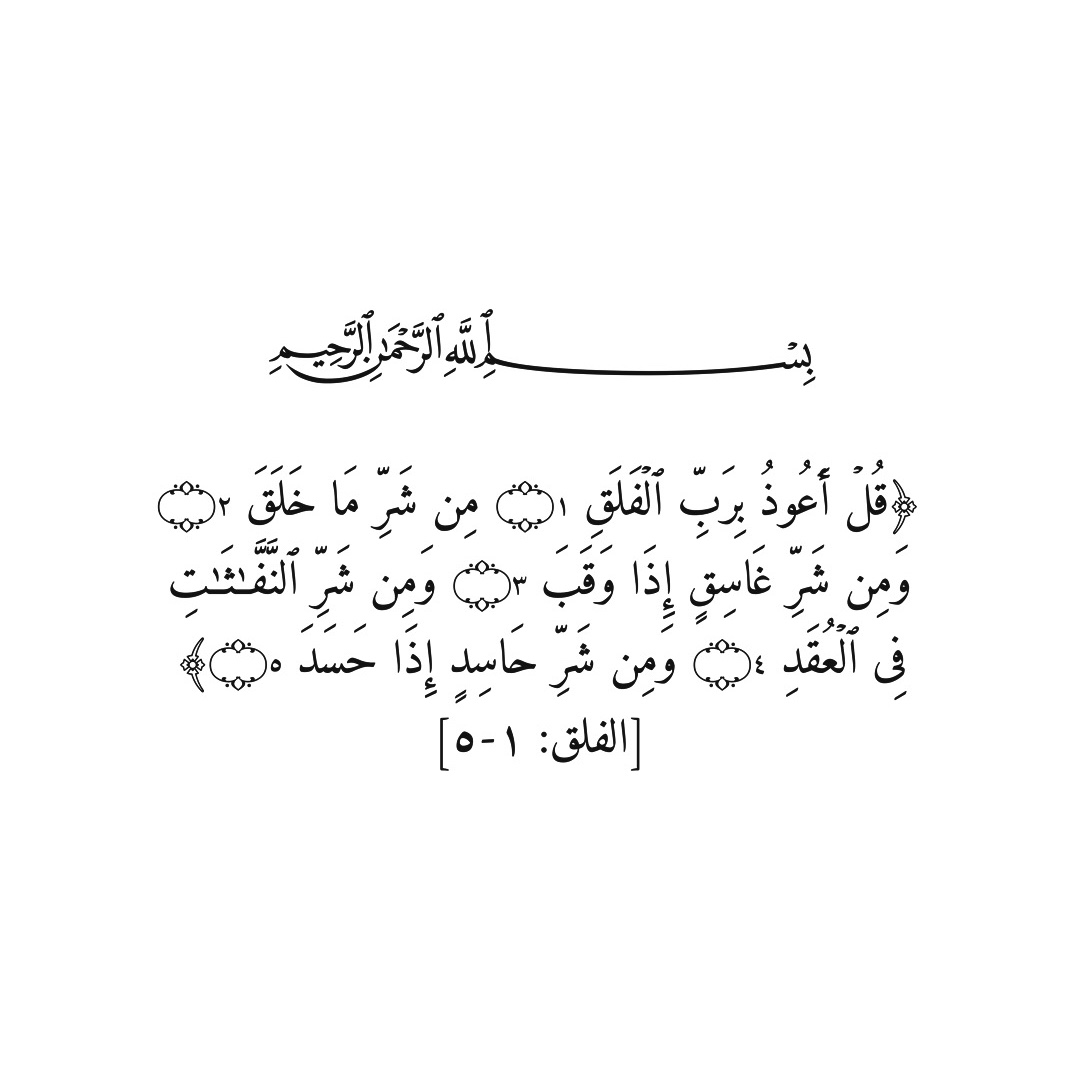 بِسْمِ ٱللَّهِ ٱلرَّحْمَٰنِ ٱلرَّحِيمِ
﴿قُلْ أَعُوذُ بِرَبِّ ٱلْفَلَقِ ١۝ مِن شَرِّ مَا خَلَقَ ٢۝
وَمِن شَرِّ غَاسِقٍ إِذَا وَقَبَ ٣۝ وَمِن شَرِّ ٱلنَّفَّـٰثَـٰتِ
فِى ٱلْعُقَدِ ٤۝ وَمِن شَرِّ حَاسِدٍ إِذَا حَسَدَ ٥۝﴾
[الفلق: ١-٥]